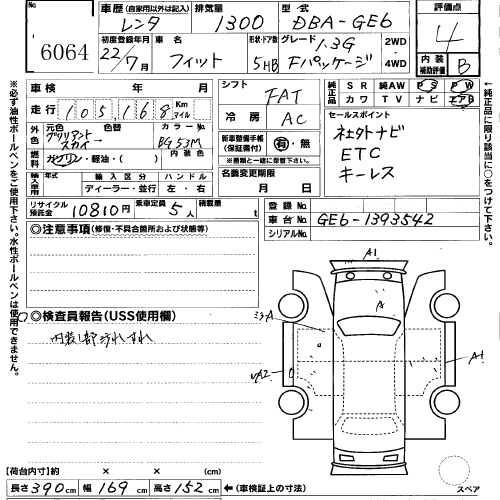 No.
6064
車歴 (自家用以外は記入)
レンタ
排気量
1300
型式
DBA-GE6
評価点
4
初度登録年月
22/7月
車名
フィット
形状・ドア数
5HB
グレード
1.3G
Fパッケージ
2WD
4WD
内装
補助評価
B
車検 年 月
走行 105,168 Km マイル
シフト
FAT
冷房
AC
純正品
SR 純AW PS PW
カワ TV ナビ エアB
外色
元色
ブリリアントスカイ
色替
カラーNo.
BG53M
内装色
燃料
ガソリン・軽油・( )
新車整備手帳
(保証書付)
有・無
※書類と一緒に巻替下さい。
セールスポイント
社外ナビ
ETC
キーレス
輸入車用
年式
輸入区分
ディーラー・並行
ハンドル
左・右
名義変更期限
月 日
リサイクル預託金
10810円
乗車定員
5人
積載量
t
登録No.
車台No.
GE6-1393542
シリアルNo.
※必ず油性ボールペンをご使用下さい。水性ボールペンは使用できません。
※純正品に限り該当に○をつけて下さい。
◎注意事項(修復・不具合箇所および状態等)
◎検査員報告(USS使用欄)
内装し部汚れすれ
A1
A
A
A1
A2
【荷台内寸】約 × × (cm)
長さ390cm 幅169cm 高さ152cm ←(車検証上の寸法)
スペア